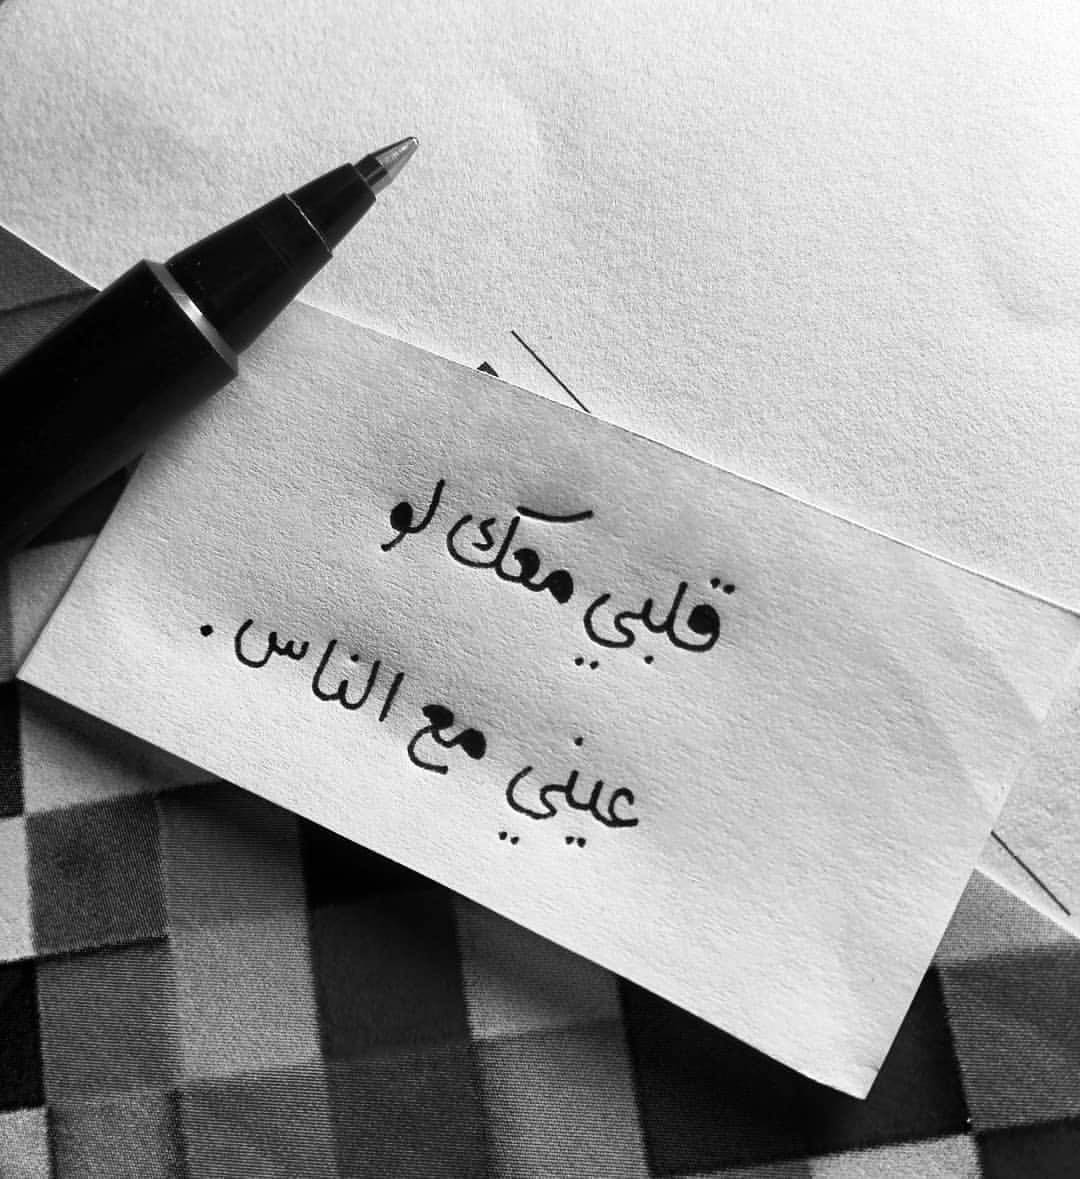 قلبي معك لو
عيني مع الناس .